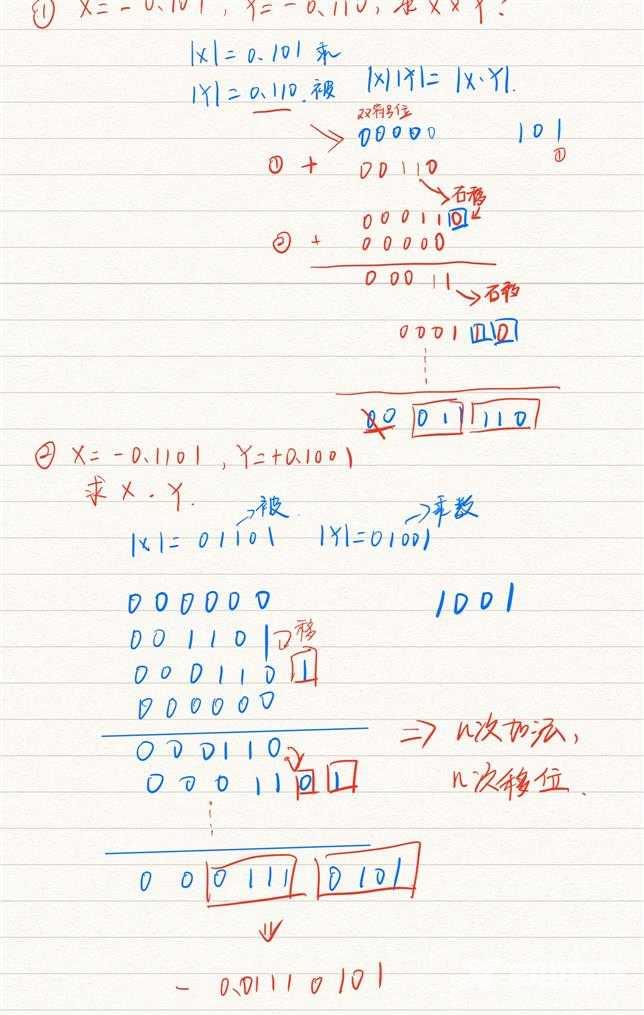 ① X = - 0.101, Y = - 0.110, 求 X × Y?
|X| = 0.101 乘
|Y| = 0.110. 被 |X||Y| = |X·Y|.
双符号位
00000 101
① + 00110 ①
右移
000110
② + 00000
00011
右移
000110
00 01 110
② X = - 0.1101, Y = +0.1001
求 X · Y.
→被 →乘数
|X| = 01101 |Y| = 01001
000000 1001
001101 移
000110 1
000000
000110 ⇒ n次加法,
00011 0 1 n次移位.
00 0111 0101
- 0.01110101